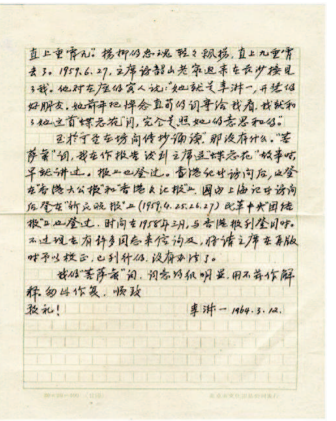 直上重霄九"。杨柳的忠魂轻轻飘扬,直上九重霄
去了。1959.6.27,主席访韶山老家迴来在长沙接见
了我。他对在座的客人说:"她就是李淑一,开慧的
好朋友。她前年把悼念直荀的词寄给我看,我就和
了她这首蝶恋花词,完全是照她的意思和的。
至於学生访问传抄诵读,那没有什么。"菩
萨蛮"词,我在作报告谈到主席这"蝶恋花"故事时
早就讲过。报上也登过。香港访问后,也登
在香港大公报和香港文汇报上,国内上海访问
后登在"新民晚报"(1959.4.25.26.27)民革中央团结
报上也登过,时间在1958年三月,与香港报刊登同时。
不过现在有许多同志来信询及,请主席在再版
时予以校正,没有
我的"菩萨蛮"词,词意似很明显,用不着作解
释,匆此作复,顺致
敬礼! 李淑一 1964.3.12.